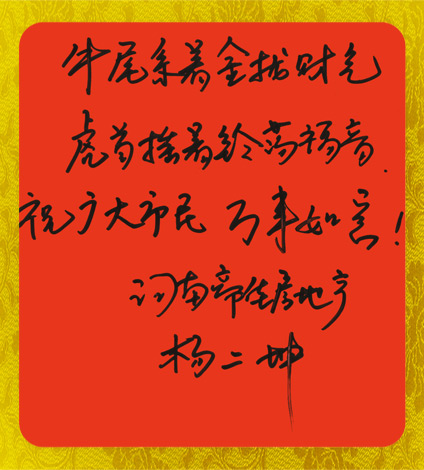 牛尾系着金拢财气
虎首摇着铃荡福音.
祝广大市民万事如意!
河南部佳房地产
杨二坤